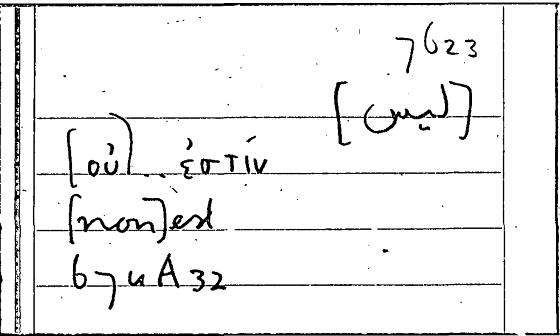 7623
[ليس]
[οὐ]..ἐστίν
[non] est
67uA32